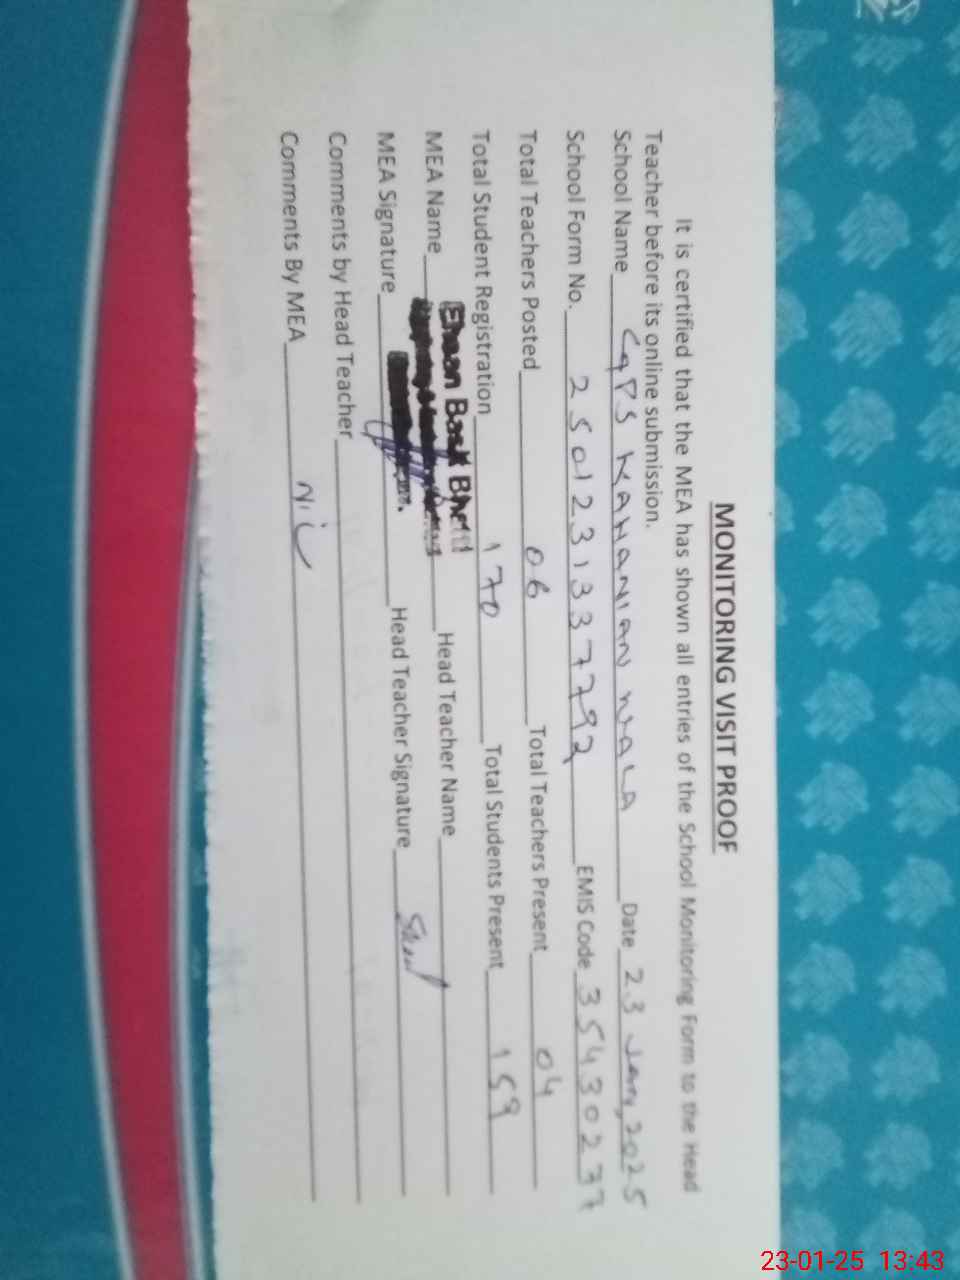 MONITORING VISIT PROOF
It is certified that the MEA has shown all entries of the School Monitoring Form to the Head
Teacher before its online submission.
School Name GPS KAHANIAN WALA Date 23 Jany, 2025
School Form No. 2501231337792 EMIS Code 35430237
Total Teachers Posted 06 Total Teachers Present 04
Total Student Registration 170 Total Students Present 159
MEA Name Ehsan Bhatti Head Teacher Name
MEA Signature Head Teacher Signature
Comments by Head Teacher
Comments By MEA Nil
23-01-25 13:43